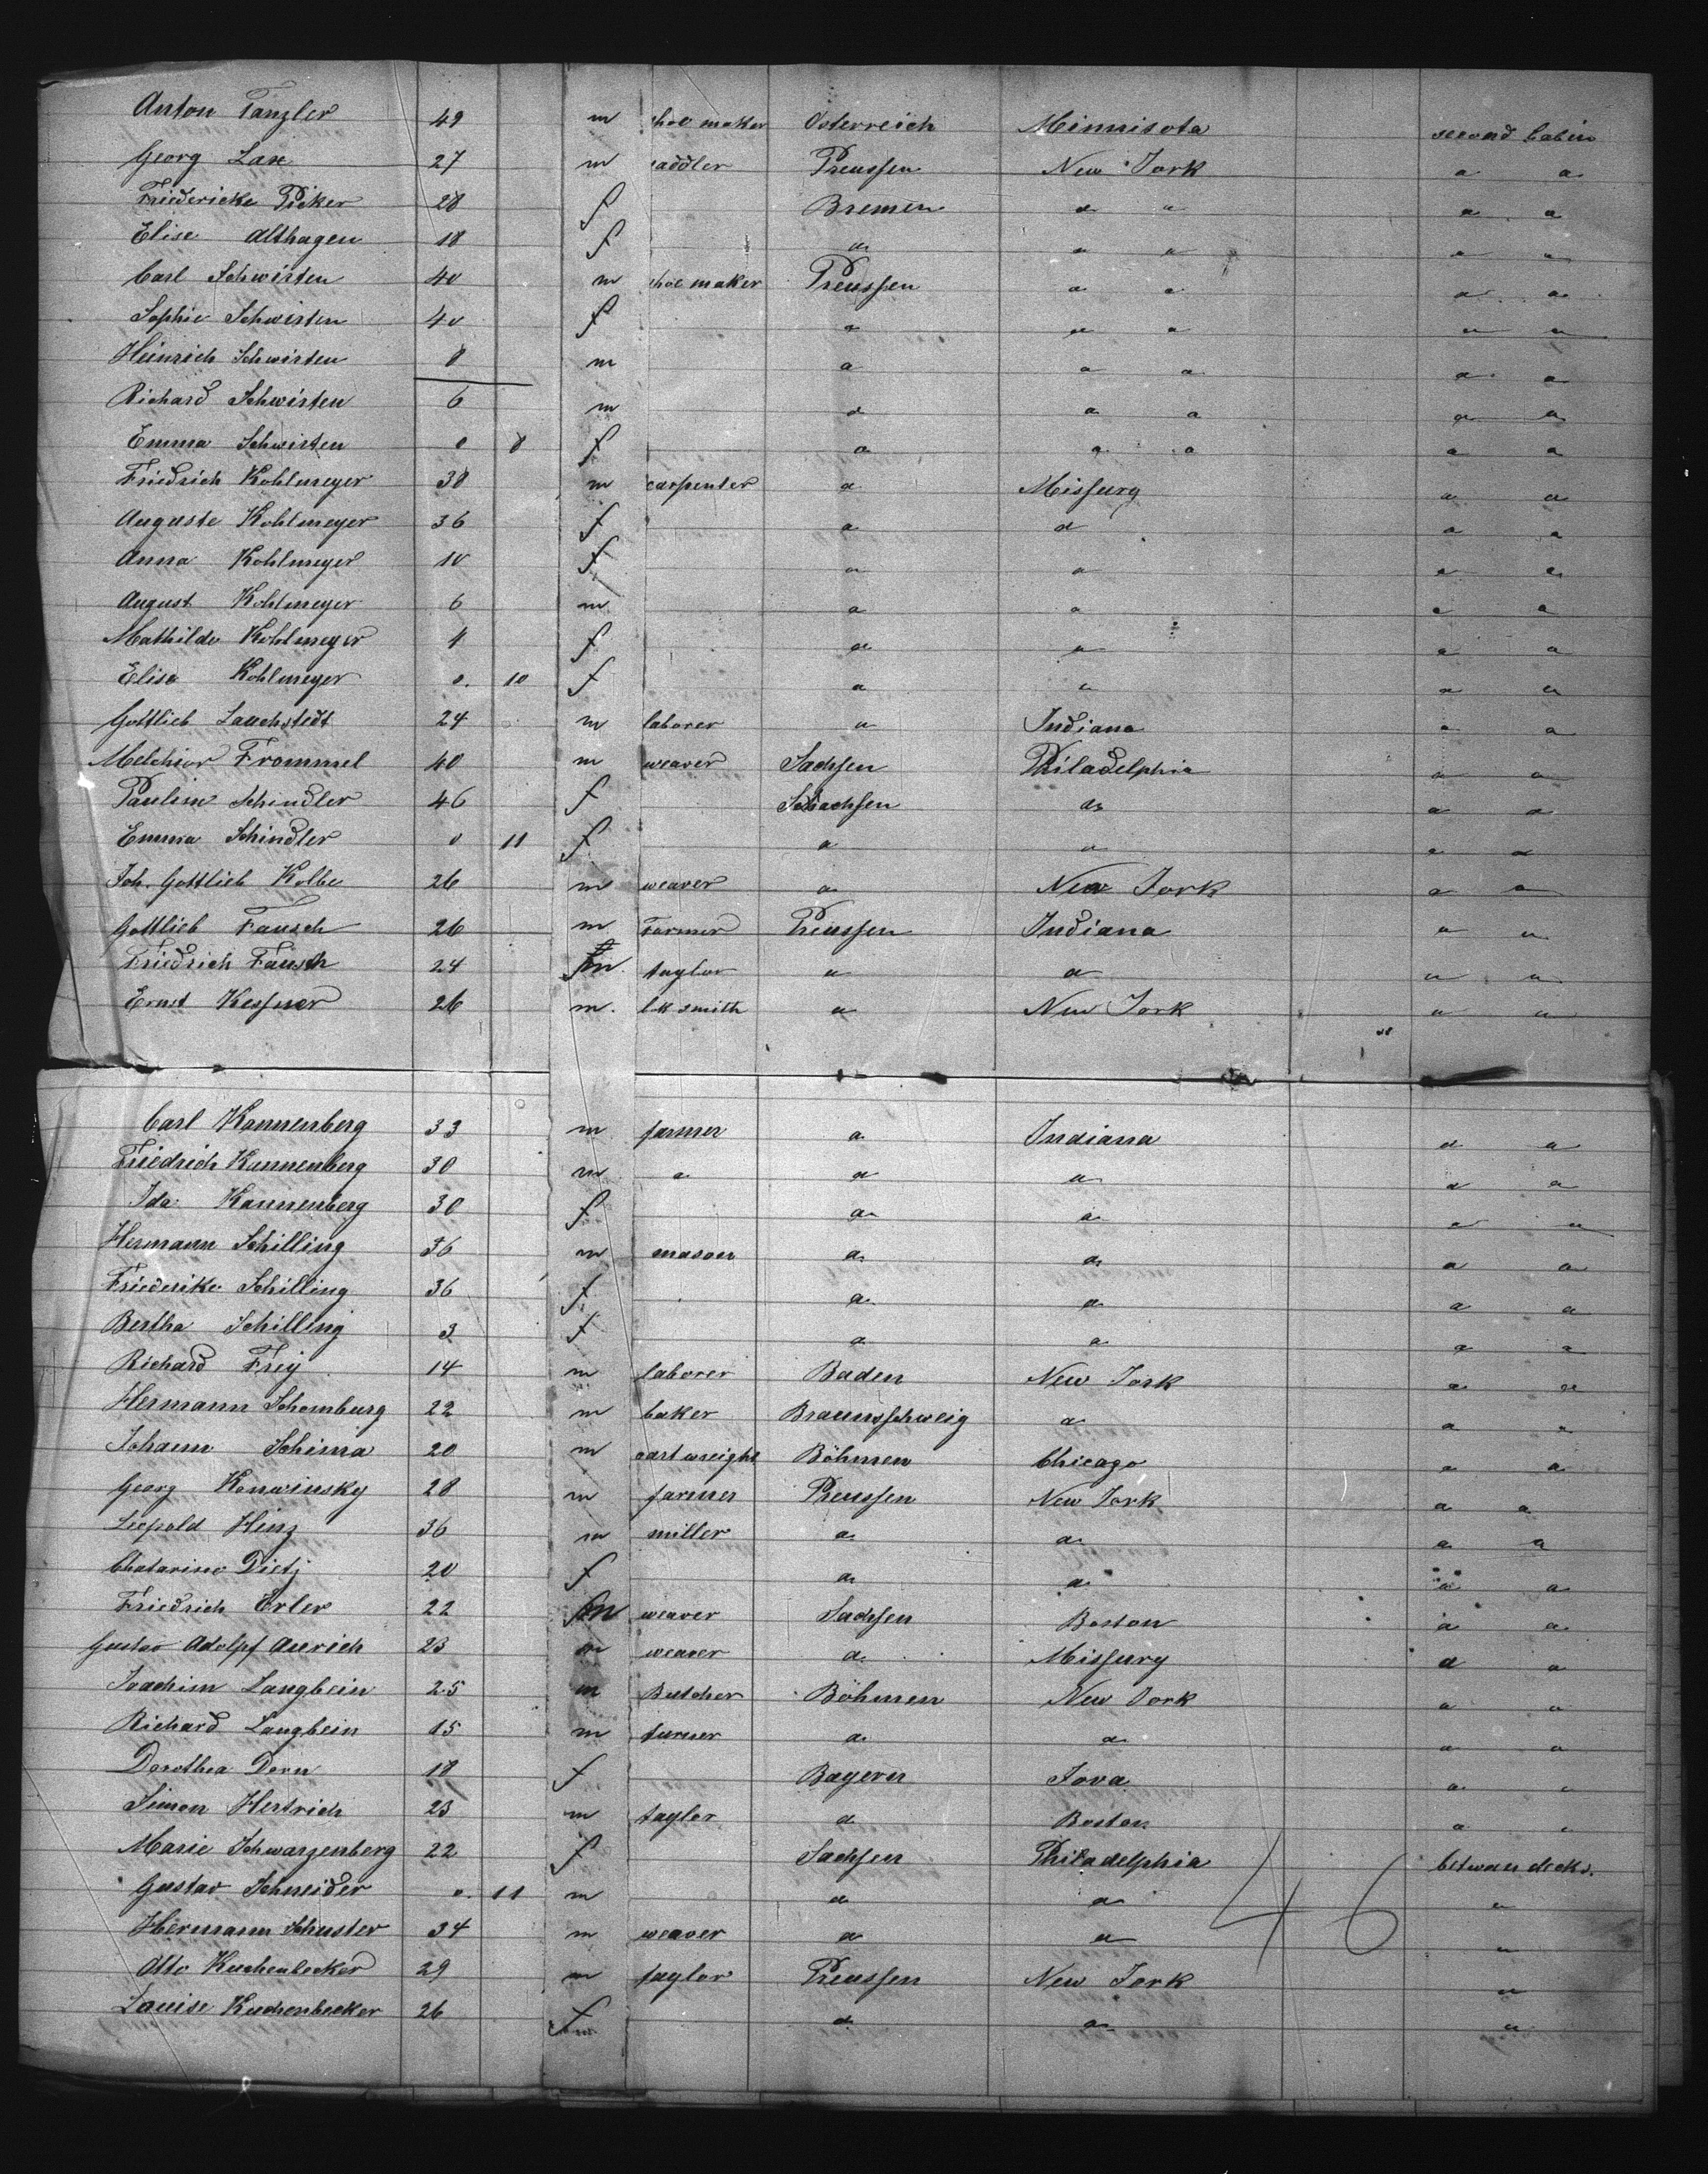 Anton Tanzler 49 m shoe maker Österreich Minnisota second Cabin
Georg Lax 27 m saddler Preussen New York a a
Friedericke Picker 28 f Bremen a a a a
Elise Althagen 18 f a a a a a
Carl Schwirten 40 m shoe maker Preussen a a a a
Sophie Schwirten 40 f a a a a a
Heinrich Schwirten 8 m a a a a a
Richard Schwirten 6 m a a a a a
Emma Schwirten 0 8 f a a a a a
Friedrich Kohlmeyer 38 m carpenter a Missury a a
Auguste Kohlmeyer 36 f a a a a
Anna Kohlmeyer 10 f a a a a
August Kohlmeyer 6 m a a a a
Mathilde Kohlmeyer 4 f a a a a
Elise Kohlmeyer 0. 10 f a a a a
Gottlieb Lauchstedt 24 m laborer a Indiana a a
Melchior Frommel 40 m weaver Sachsen Philadelphia a a
Paulin Schindler 46 f Sachsen a a a
Emma Schindler 0 11 f a a a a
Joh. Gottlieb Kolbe 26 m weaver a New York a a
Gottlieb Fausch 26 m Farmer Preussen Indiana a a
Friedrich Fausch 24 m. taylor a a a a
Ernst Kessner 26 m. lk smith a New York a a
Carl Kannenberg 33 m farmer a Indiana a a
Friedrich Kannenberg 30 m a a a a a
Ida Kannenberg 30 f a a a a
Hermann Schilling 36 m mason a a a a
Friederike Schilling 36 f a a a a
Bertha Schilling 3 f a a a a
Richard Frey 14 m laborer Baden New York a a
Hermann Schomburg 22 m baker Braunschweig a a a
Johann Schima 20 m cartwreight Böhmen Chicago a a
Georg Konwinsky 28 m farmer Preussen New York a a
Leopold Hinz 36 m miller a a a a
Chatarine Dietz 20 f a a a a
Friedrich Erler 22 m weaver Sachsen Boston a a
Gustav Adolpf Aurich 23 m weaver a Missury a a
Joachim Langbein 25 m Butcher Böhmen New York a a
Richard Langbein 15 m turner a a a a
Dorothea Dorn 18 f Bayern Iova a a
Simon Hertrich 23 m taylor a Boston a a
Marie Schwarzenberg 22 f Sachsen Philadelphia between decks.
Gustav Schneider 0. 11 m a a a
Hermann Schuster 34 m weaver a a a
46
Otto Kuchenbecker 29 m taylor Preussen New York a
Louise Kuchenbecker 26 f a a a